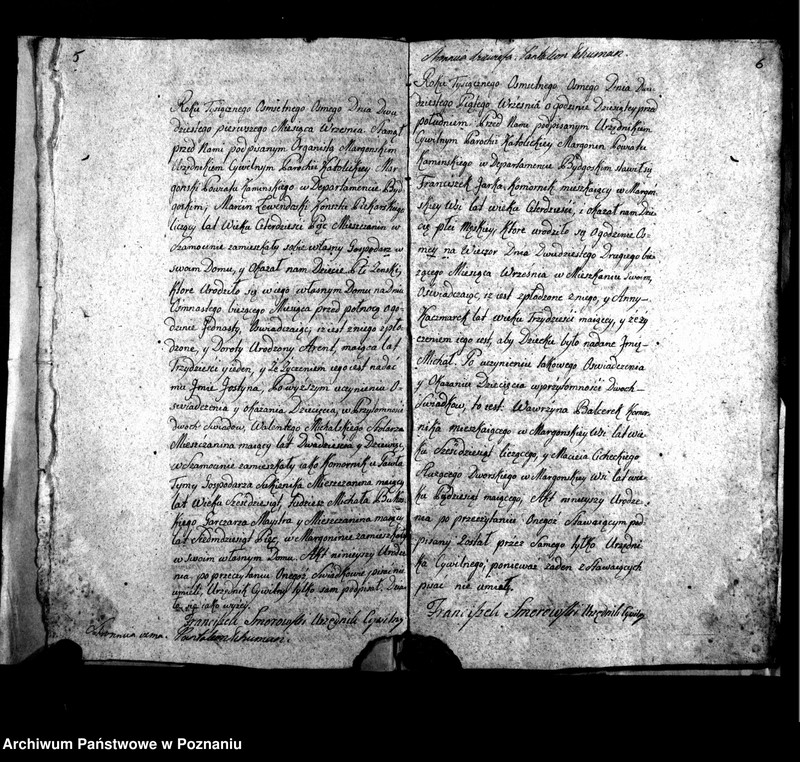 5
Roku Tysięcznego Osmsetnego Osmego Dnia Dwu
dziestego pierwszego Miesiąca Września. Stanął
przed Nami podpisanym Organistą Margonskim
Urzędnikiem Cywilnym Parochii Katolickiey Mar
gonski Powiatu Kaminskiego w Departamencie Byd
goskim, Marcin
liczący lat Wieku Czterdzieści Pięć Mieszczanin w
Szamocinie zamieszkały sobie własny Gospodarz w
swoim Domu, y Okazał nam Dziecię Płci Zenskiey,
które Urodziło się w iego własnym Domu na Dniu
Osmnastego bieżącego Miesiąca przed północą ogo
dzinie Jedenasty, Oswiadczaiąc, iż iest z niego zpło
dzone, y Doroty Urodzony Arent, maiąca lat
Trzydzieści y ieden, y że Życzeniem iego iest nadać
mu Jmie Jostyna, Po wyższym uczynieniu O
swiadczenia y okazania Dziecięcia, w Przytomności
dwoch Swiadów, Walentego Michalskiego Stolarza
Mieszczanina maiący lat Dwadzieścia y Dziewięć,
w Szamocinie zamieszkały iako Komornik u Pawła
Tymy Gospodarza Sukiennika Mieszczanina maiący
lat Wieku Szescdziesiąt, tudziesz Michała
Garczarza Maystra y Mieszczanina maiący
lat Siedmdziesiąt Pięć, w Margoninie zamieszkały
w swoim własnym Domu. Akt ninieyszy Urodze
nia, po przeczytaniu Onegoż, Swiadkowie pisac nie
umieli, Urzędnik Cywilny tylko sam podpisał. Działo
się iako wyżey.
Franciszek Smorowski Urzędnik Cywilny
Pantaleon Schuman.
6
Pantaleon Schuman.
Roku Tysięcznego Osmsetnego Osmego Dnia Dwu
dziestego Piątego Września o godzinie Dziesiątey przed
południem. Przed Nami podpisanym Urzędnikiem
Cywilnym Parochii Katolickiey Margonin Powiatu
Kaminskiego w Departamencie Bydgoskim stawił się
Franciszek Jarka Komornik mieszkaiący w Margon
skiey Wsi lat wieku Czterdzieści, i okazał nam Dzie
cię płci Męskiey, które urodziło się o godzinie Os
mey na Wieczor Dnia Dwudziestego Drugiego bie
żącego Miesiąca Września w Mieszkaniu swoim,
Oświadczaiąc, iż iest zpłodzone z niego, y Anny
Kaczmarek lat wieku Trzydzieści maiący, y ze ży
czeniem iego iest, aby Dziecku było nadane Jmię
Michał. Po uczynieniu takowego Oswiadczenia
y Okazaniu Dziecięcia w przytomności Dwoch
Swiadkow, to iest: Wawrzyna Balcerek Komor
nika mieszkaiącego w Margonskiey Wsi lat wie
ku Sześćdziesiąt liczącego, y Macieia Cicheckiego
Służącego Dworskiego w Margonskiey Wsi lat wie
ku Pędziesiąt maiącego, Akt ninieyszy Urodze
nia po przeczytaniu Onegoż Stawaiącym pod
pisany został przez Samego tylko Urzędni
ka Cywilnego, ponieważ żaden z Stawaiących
pisac nie umieią.
Franciszek Smorowski Urzędnik Cywilny
Archiwum Państwowe w Poznaniu